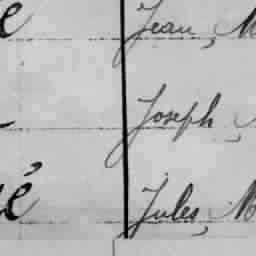 e Jean, M
Joseph
é Jules, M